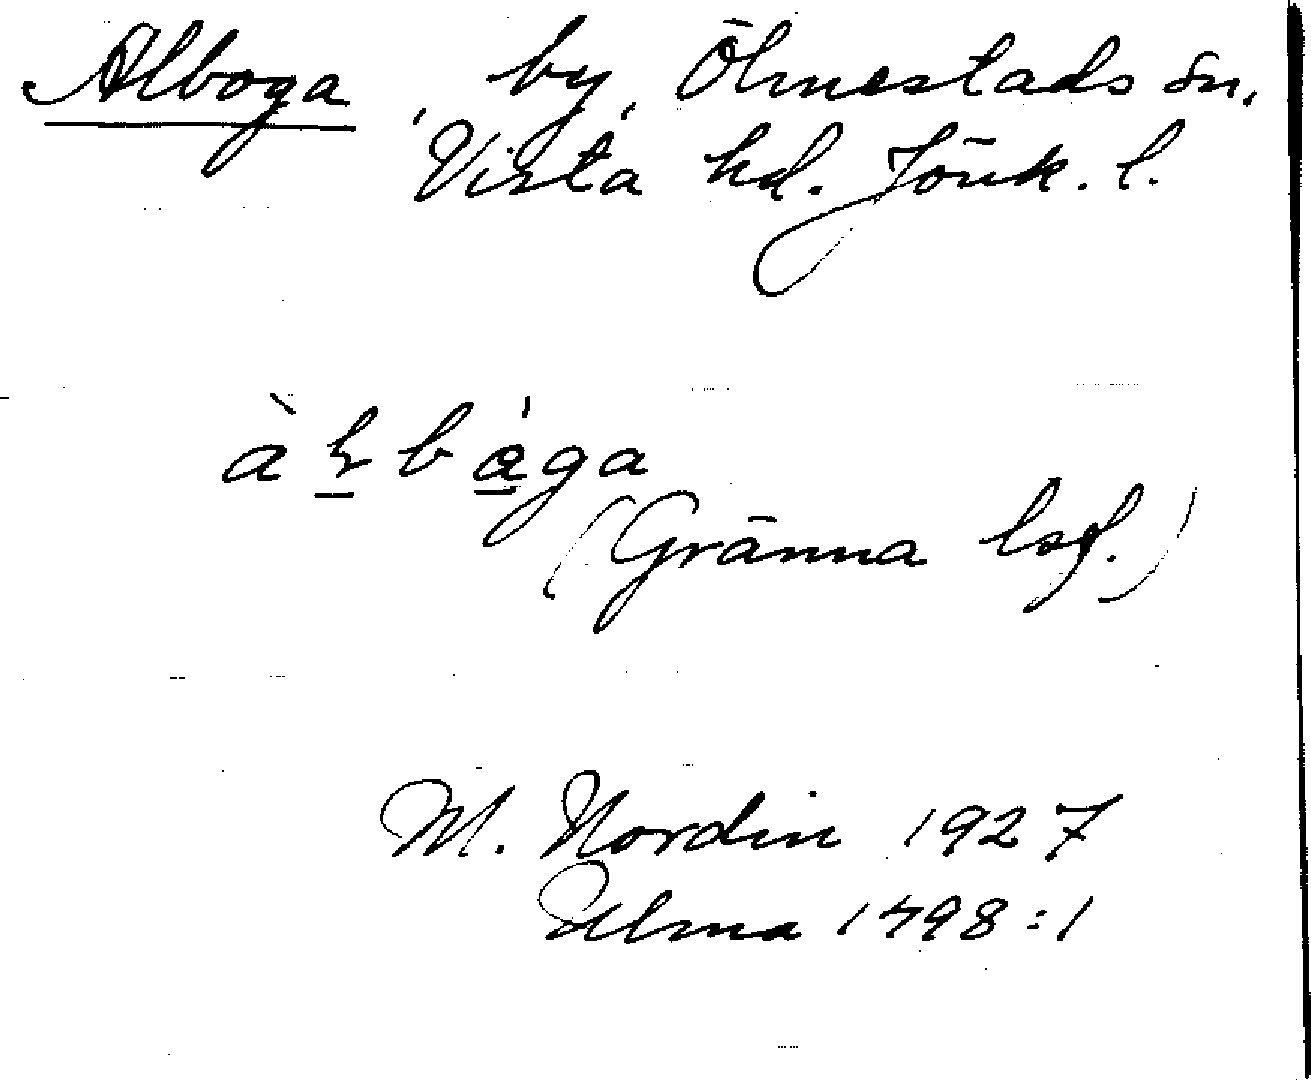 Alboga, by, Ölmestads sn,
Vista hd. Jönk. l.
àl̠bǻ̠ga
(Gränna lsf.)
M. Nordin 1927
Ulma 1498:1